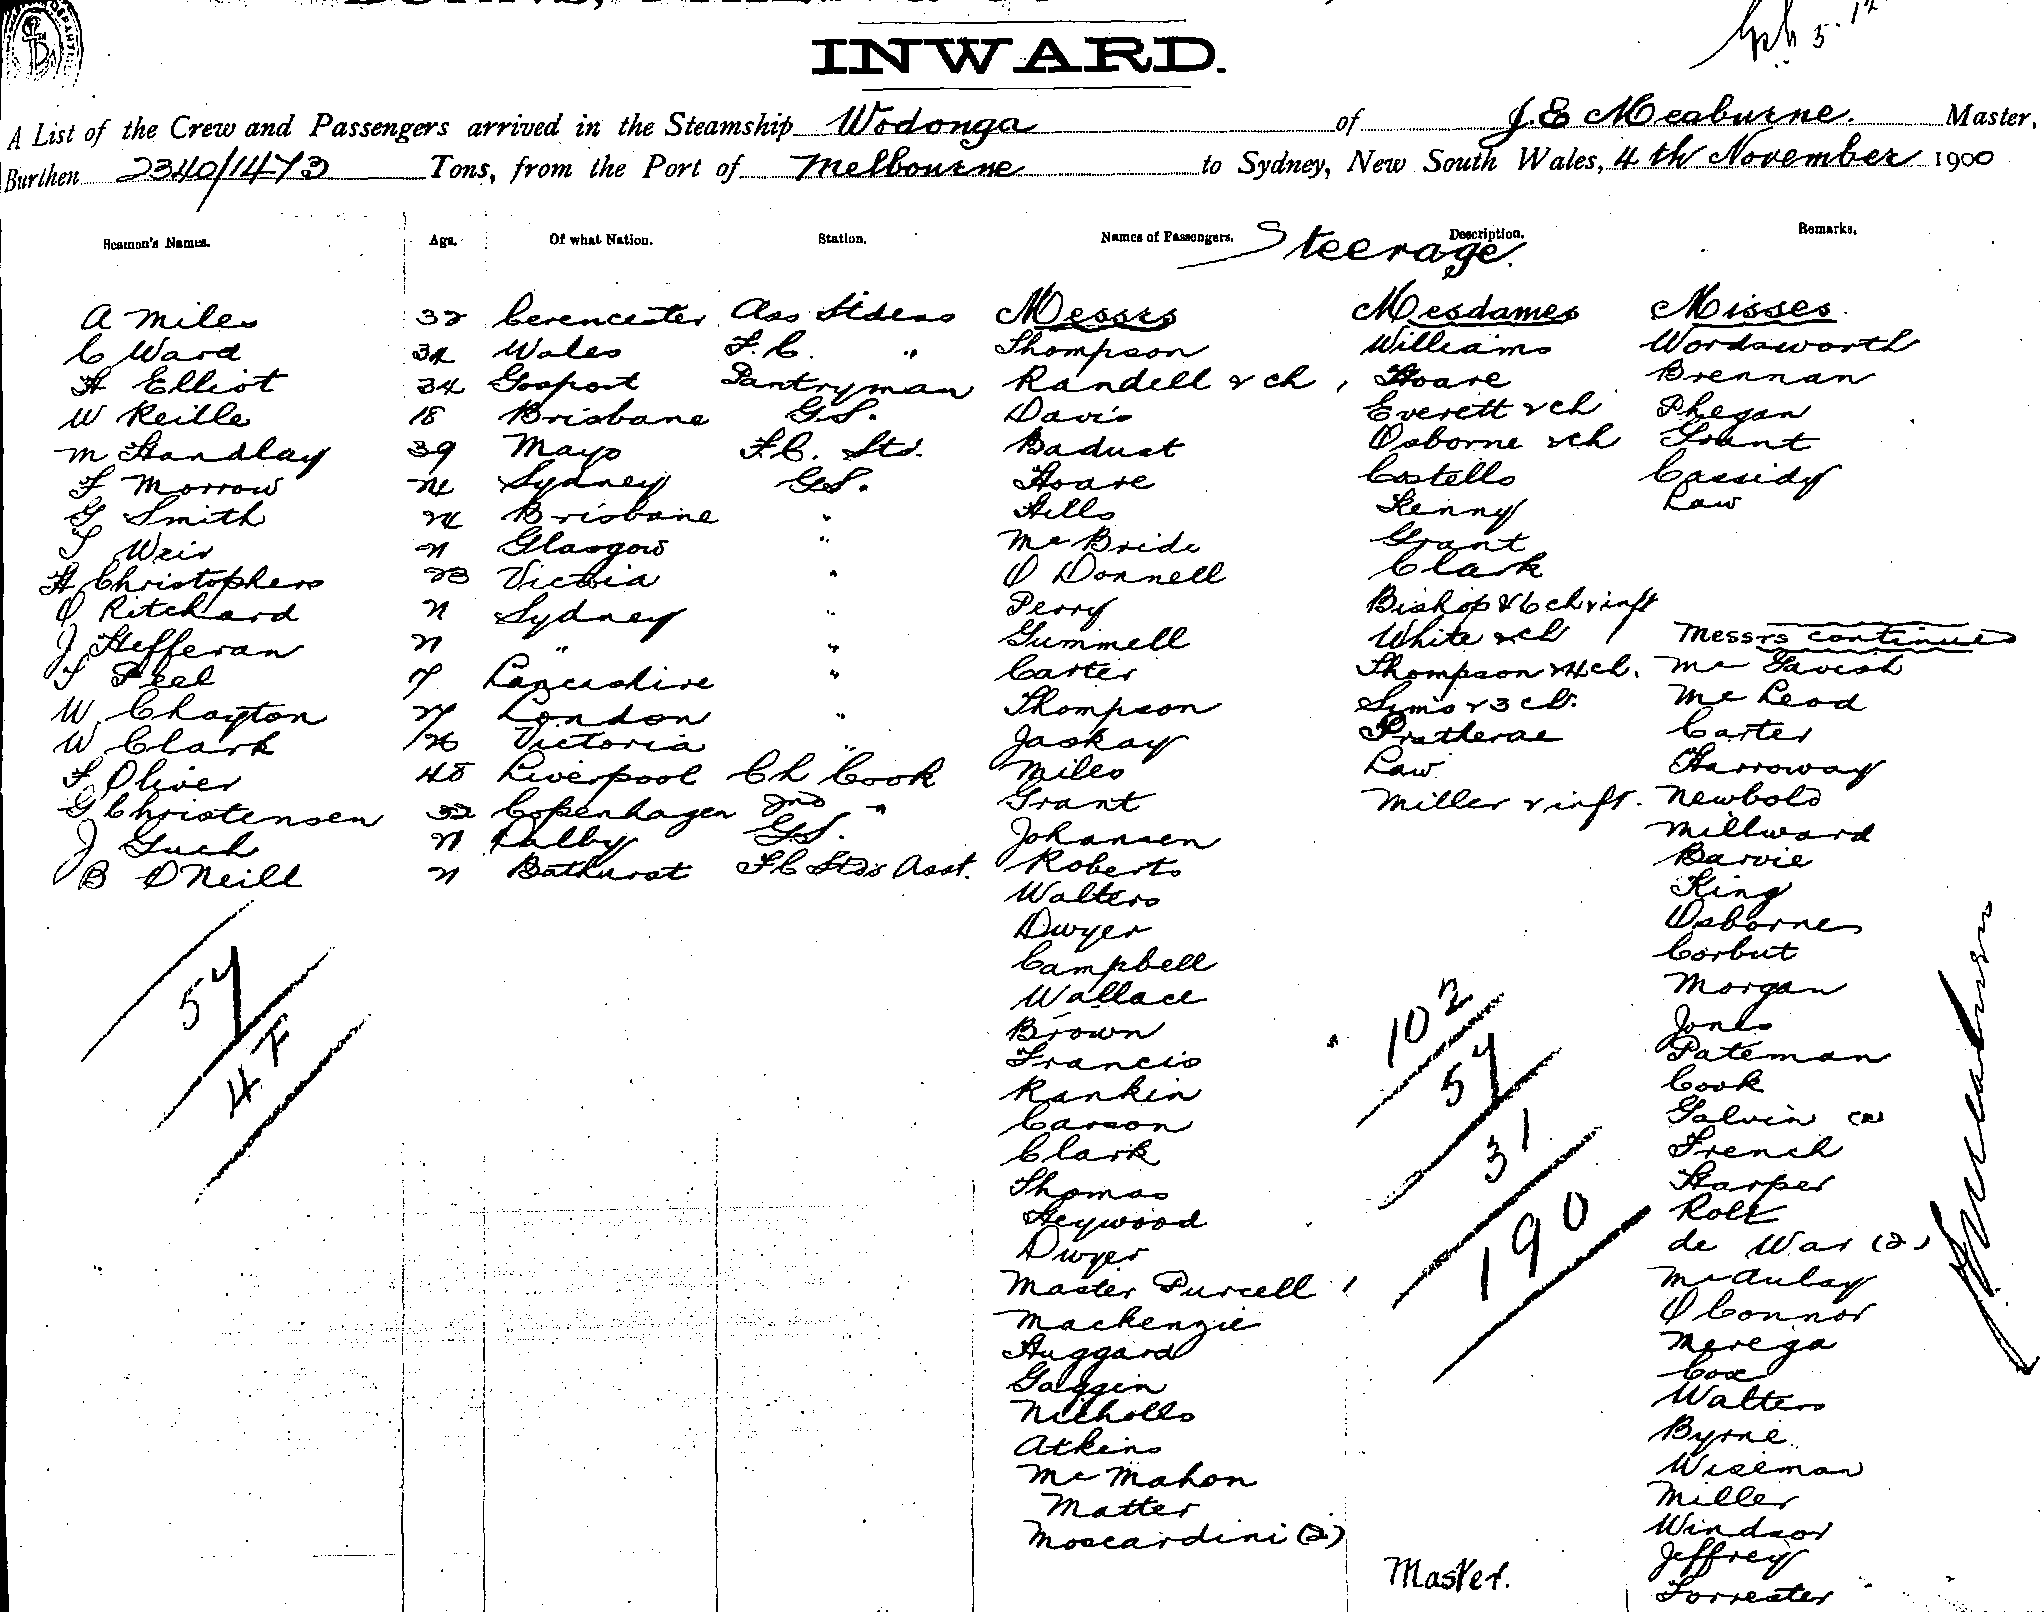 INWARD.
A List of the Crew and Passengers arrived in the Steamship Wodonga of J.E Meaburne. Master,
Burthen 2340/1473 Tons, from the Port of Melbourne to Sydney, New South Wales, 4th November 1900
Seamen's Names. Age. Of what Nation. Station. Names of Passengers. Description. Remarks.
Steerage.
A Miles 32 Cerencester Ass Stdess Messrs Mesdames Misses
C Ward 34 Wales F.C. " Thompson Williams Wordsworth
H Elliot 34 Gosport Pantryman Randell & ch, Hoare Brennan
W Reille 18 Brisbane G.S. Davis Everett & ch Phegan
M Handlay 39 Mayo F.C. Std. Badust Osborne & ch Grant
F Morrow 24 Sydney G.S. Hoare Costello Cassidy
G Smith 24 Brisbane " Hills Kenny Law
T Weir 21 Glasgow " McBride Grant
H Christophers 23 Victoria " O Donnell Clark
O Ritchard 21 Sydney " Perry Bishop & 6 ch & inft
J Hefferan 21 " " Gummell White & ch Messrs continued
T Peel Lancashire " Carter Thompson & 4 ch. Mc Tavish
W Chayton 27 London " Thompson Syms & 3 ch. Mc Leod
W Clark 26 Victoria " Jaskay Carter
F. Oliver 48 Liverpool Ch Cook Miles Law Harroway
G Christensen 32 Copenhagen 2nd " Grant Miller & inft. Newbold
J Such 21 Dalby G.S. Johansen Millward
B O'Neill 21 Bathurst F.C Stds Asst. Roberts Barvie
Walters King
Dwyer Osborne
Campbell Corbut
Wallace Morgan
Brown Jones
Francis Pateman
Rankin Cook
Carson Galvin
Clark French
Thomas Harper
Heywood Rolt
Dwyer de War (2)
Master Purcell McAulay
Mackenzie O Connor
Huggard Merega
Gaggin Cox
Nicholls Walters
Atkins Byrne
Mc Mahon Wiseman
Matter Miller
Moscardini (2) Windsor
Jeffrey
Forrester
57
4 F
102
57
31
190
Master.